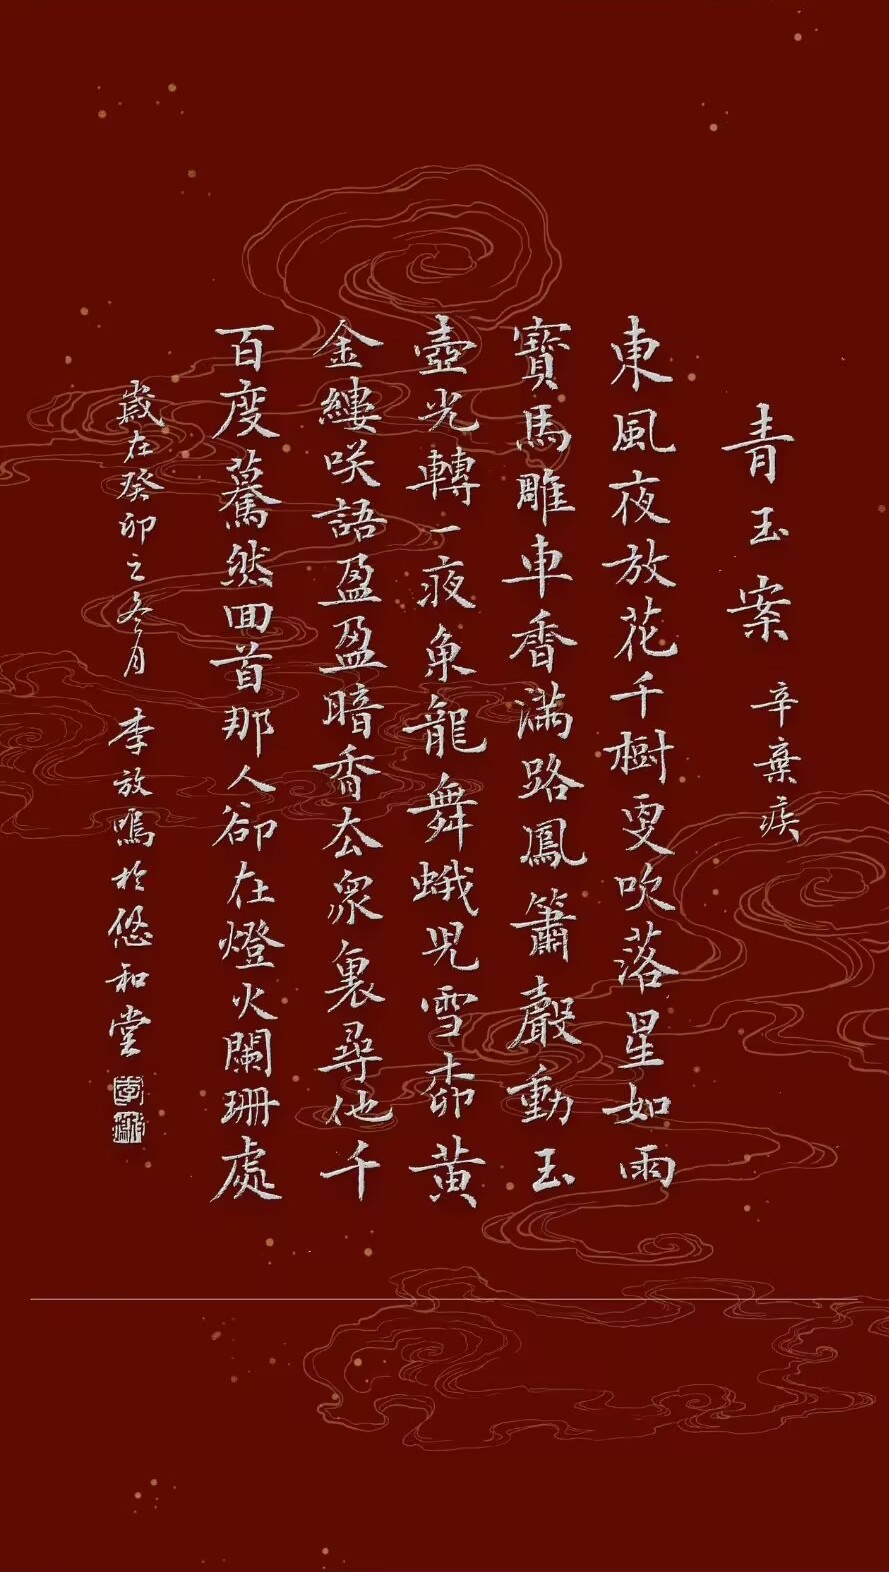 青玉案 辛棄疾
東風夜放花千樹更吹落星如雨
寶馬雕車香滿路鳳簫聲動玉
壺光轉一夜魚龍舞蛾兒雪柳黃
金縷咲語盈盈暗香去衆裏尋他千
百度驀然回首那人卻在燈火闌珊處
歲在癸卯之冬月 李放鳴於悠和堂